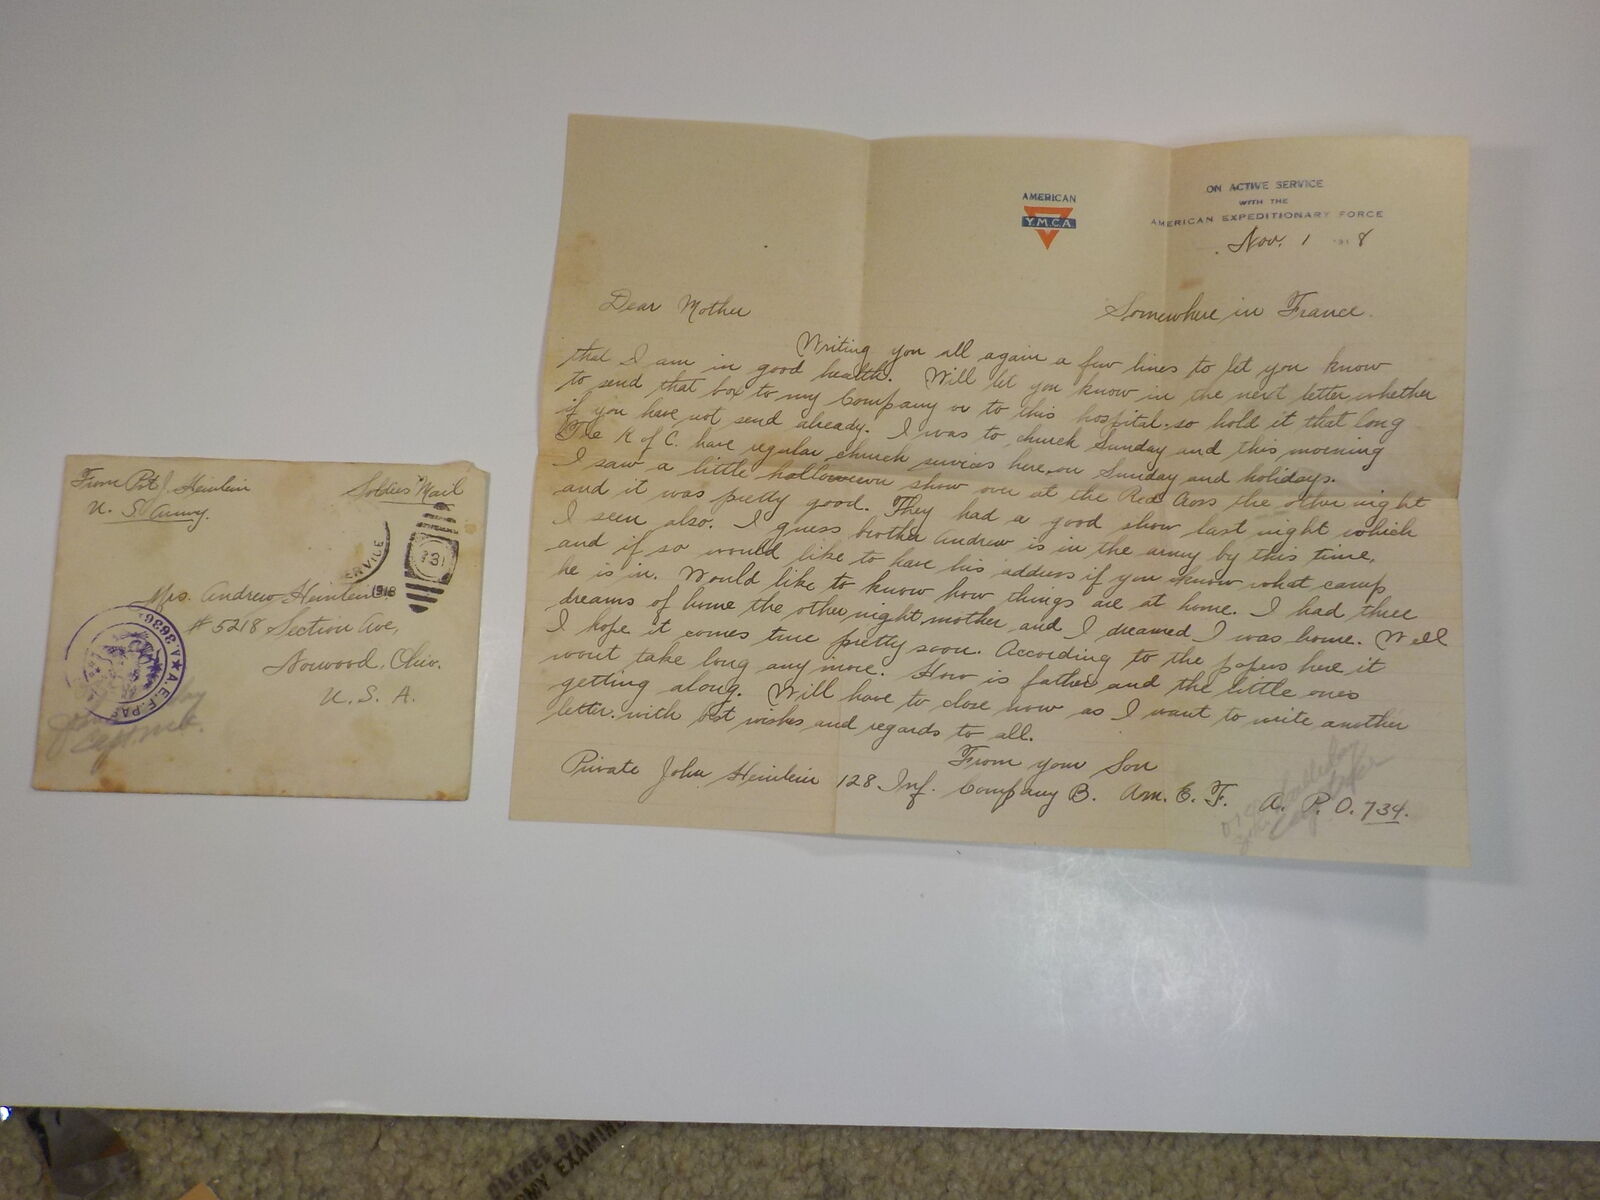 From Pvt J. Heinlein
U. S. Army.
Soldiers Mail
ERVILLE
1918
Mrs. Andrew Heinlein
# 5218 Section Ave,
Norwood, Ohio.
U. S. A.
A.E.F. PAS
AMERICAN
Y.M.C.A.
ON ACTIVE SERVICE
WITH THE
AMERICAN EXPEDITIONARY FORCE
Nov. 1 1918
Dear Mother
Somewhere in France.
Writing you all again a few lines to let you know
that I am in good health. Will let you know in the next letter, whether
to send that box to my Company or to this hospital, so hold it that long
if you have not send already. I was to church Sunday and this morning
The K of C. have regular church services here, on Sunday and holidays.
I saw a little halloween show over at the Red Cross the other night
and it was pretty good. They had a good show last night which
I seen also. I guess brother Andrew is in the army by this time,
and if so would like to have his address if you know what camp
he is in. Would like to know how things are at home. I had three
dreams of home the other night mother and I dreamed I was home. Well
I hope it comes true pretty soon. According to the papers here it
wont take long any more. How is father and the little ones
getting along. Will have to close now as I want to write another
letter. with best wishes and regards to all.
From your Son
Private John Heinlein 128 Inf. Company B. Am. E. F. A. P. O. 734.